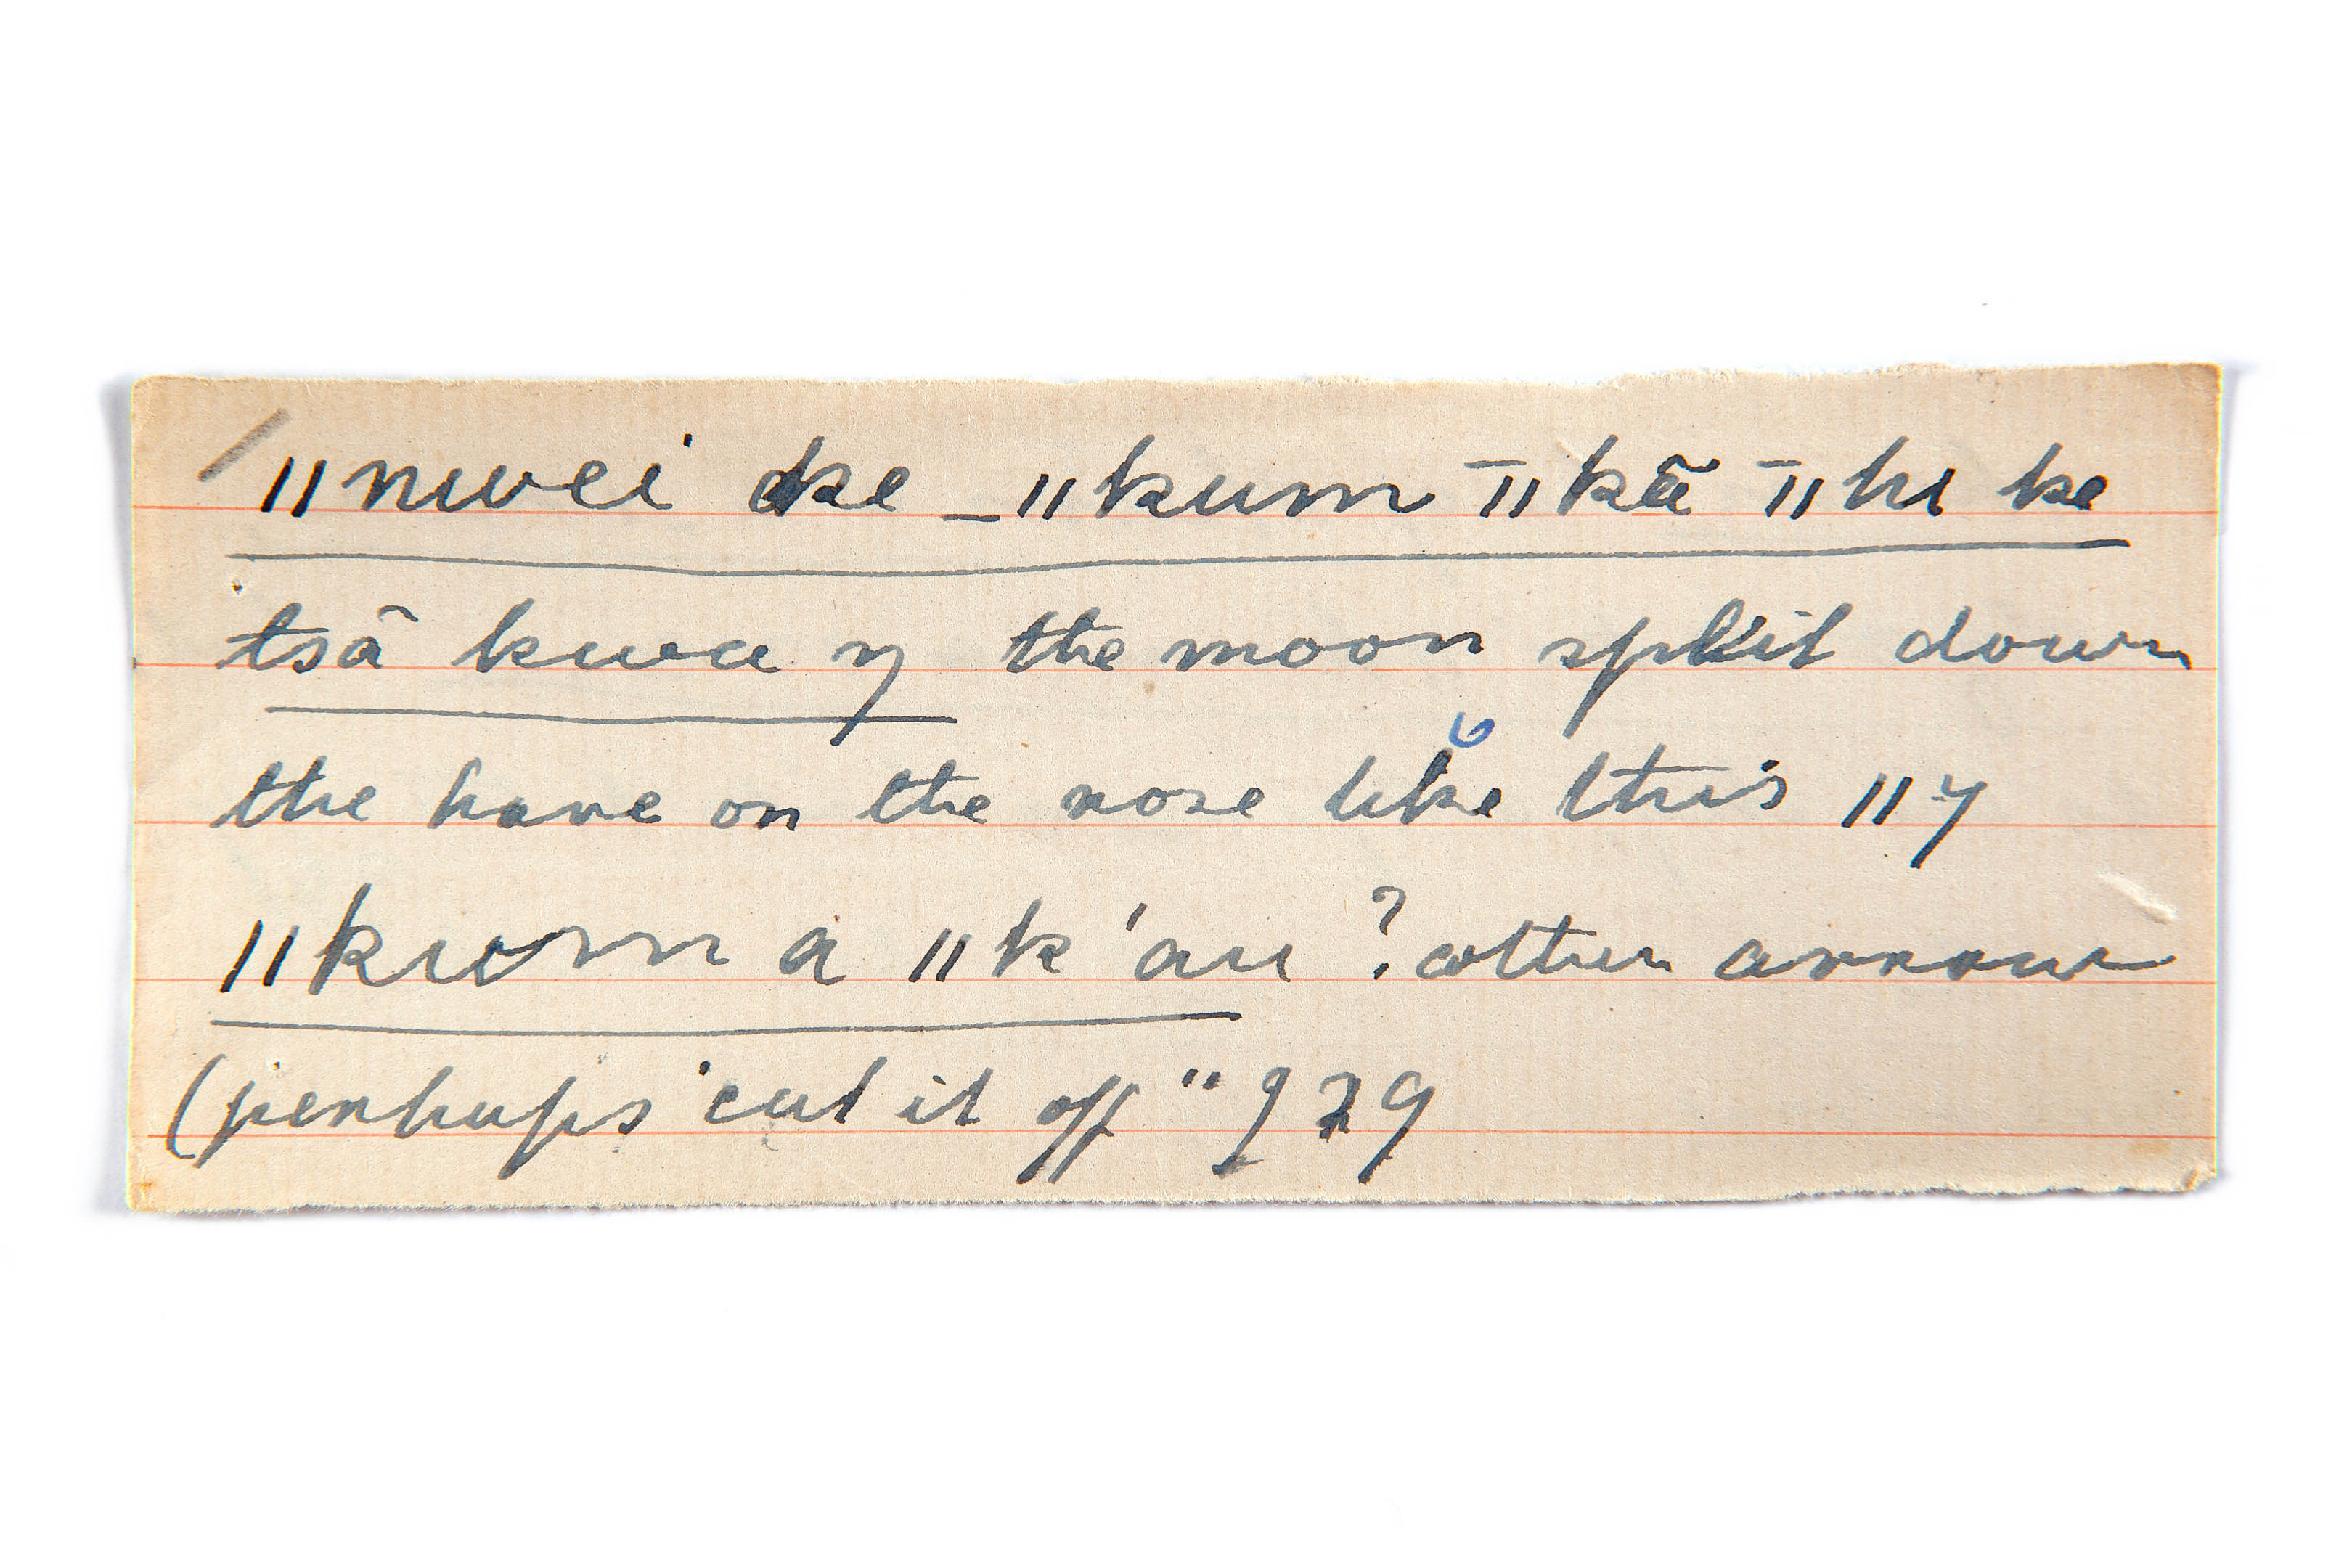 ǁnwei ke _ǁkum ¯ǁkã ¯ǁhɩ ke
tsã kwa ŋ the moon split down
the hare on the nose like this ǁŋ
ǁkum a ǁk'au ? other arrow
(perhaps 'cut it off" 929